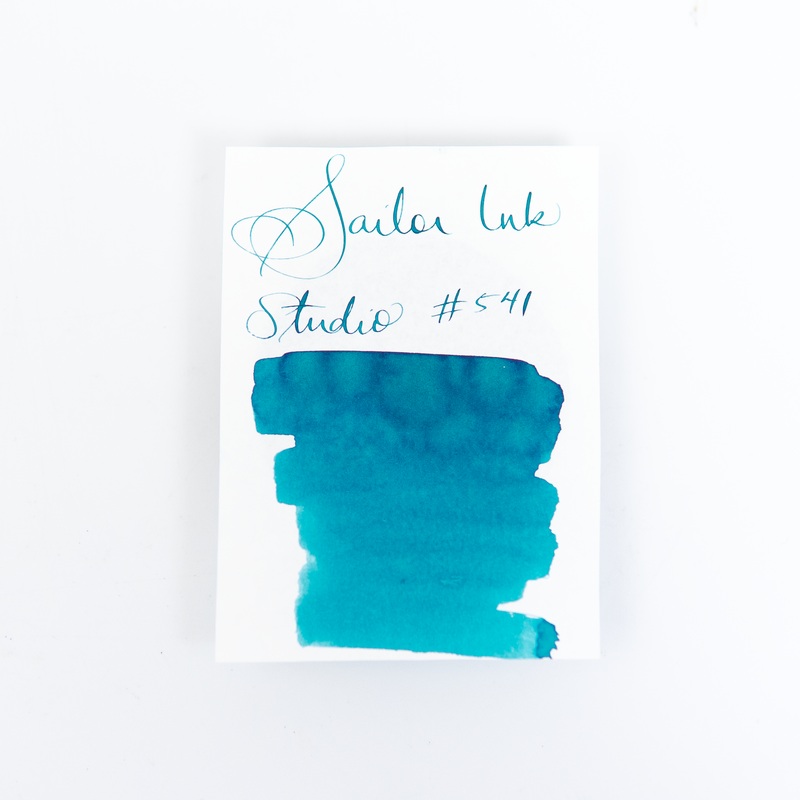 Sailor Ink
Studio #541